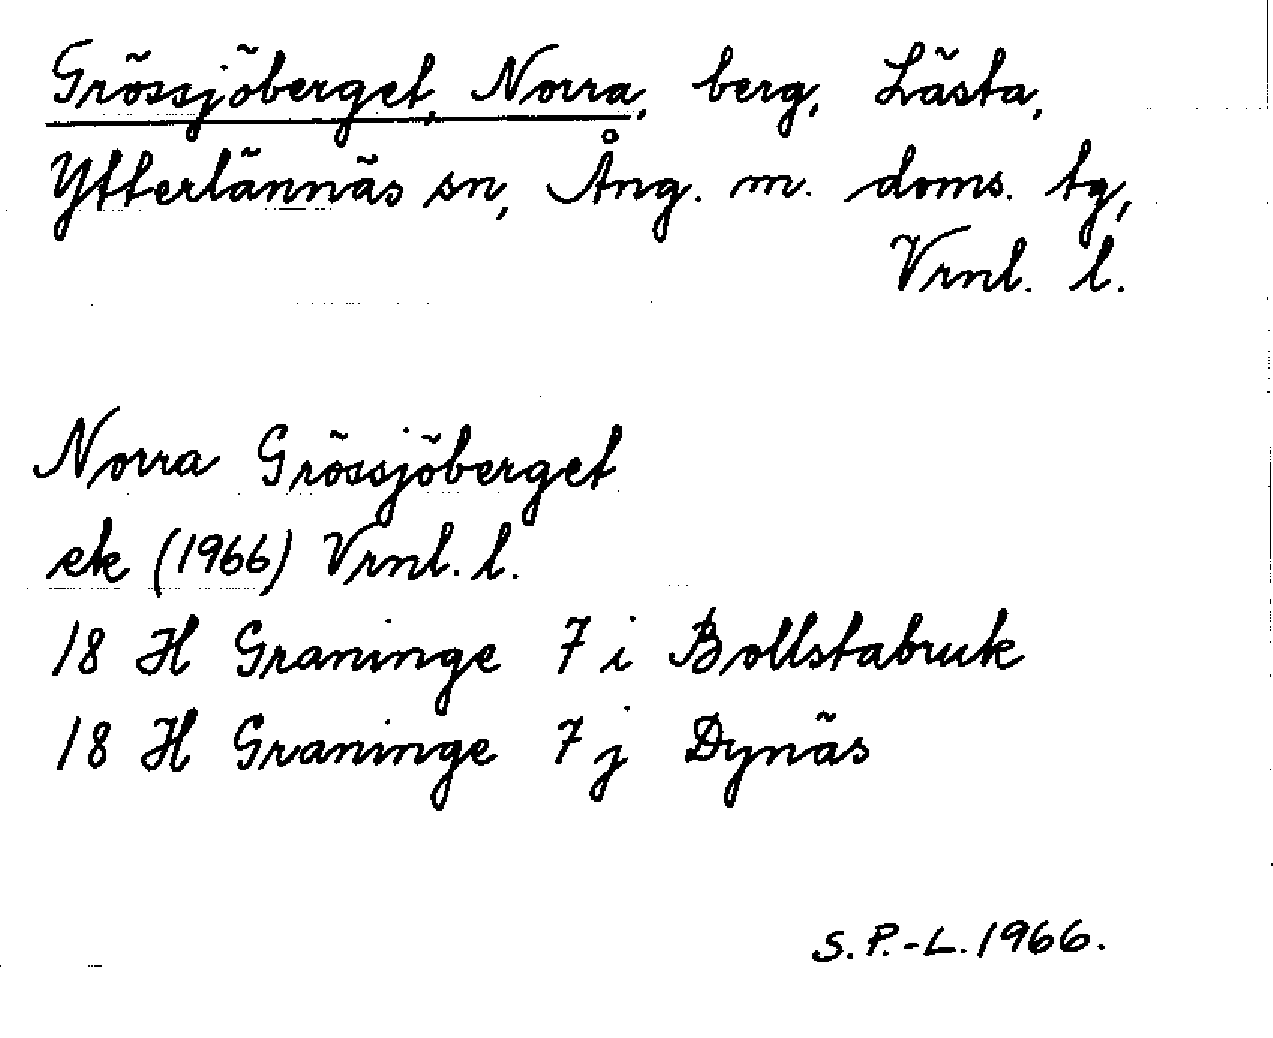 Grössjöberget, Norra, berg, Lästa,
Ytterlännäs sn, Ång. m. doms. tg,
Vrnl. l.
Norra Grössjöberget
ek (1966) Vrnl. l.
18 H Graninge 7 i Bollstabruk
18 H Graninge 7 j Dynäs
S. P.-L. 1966.